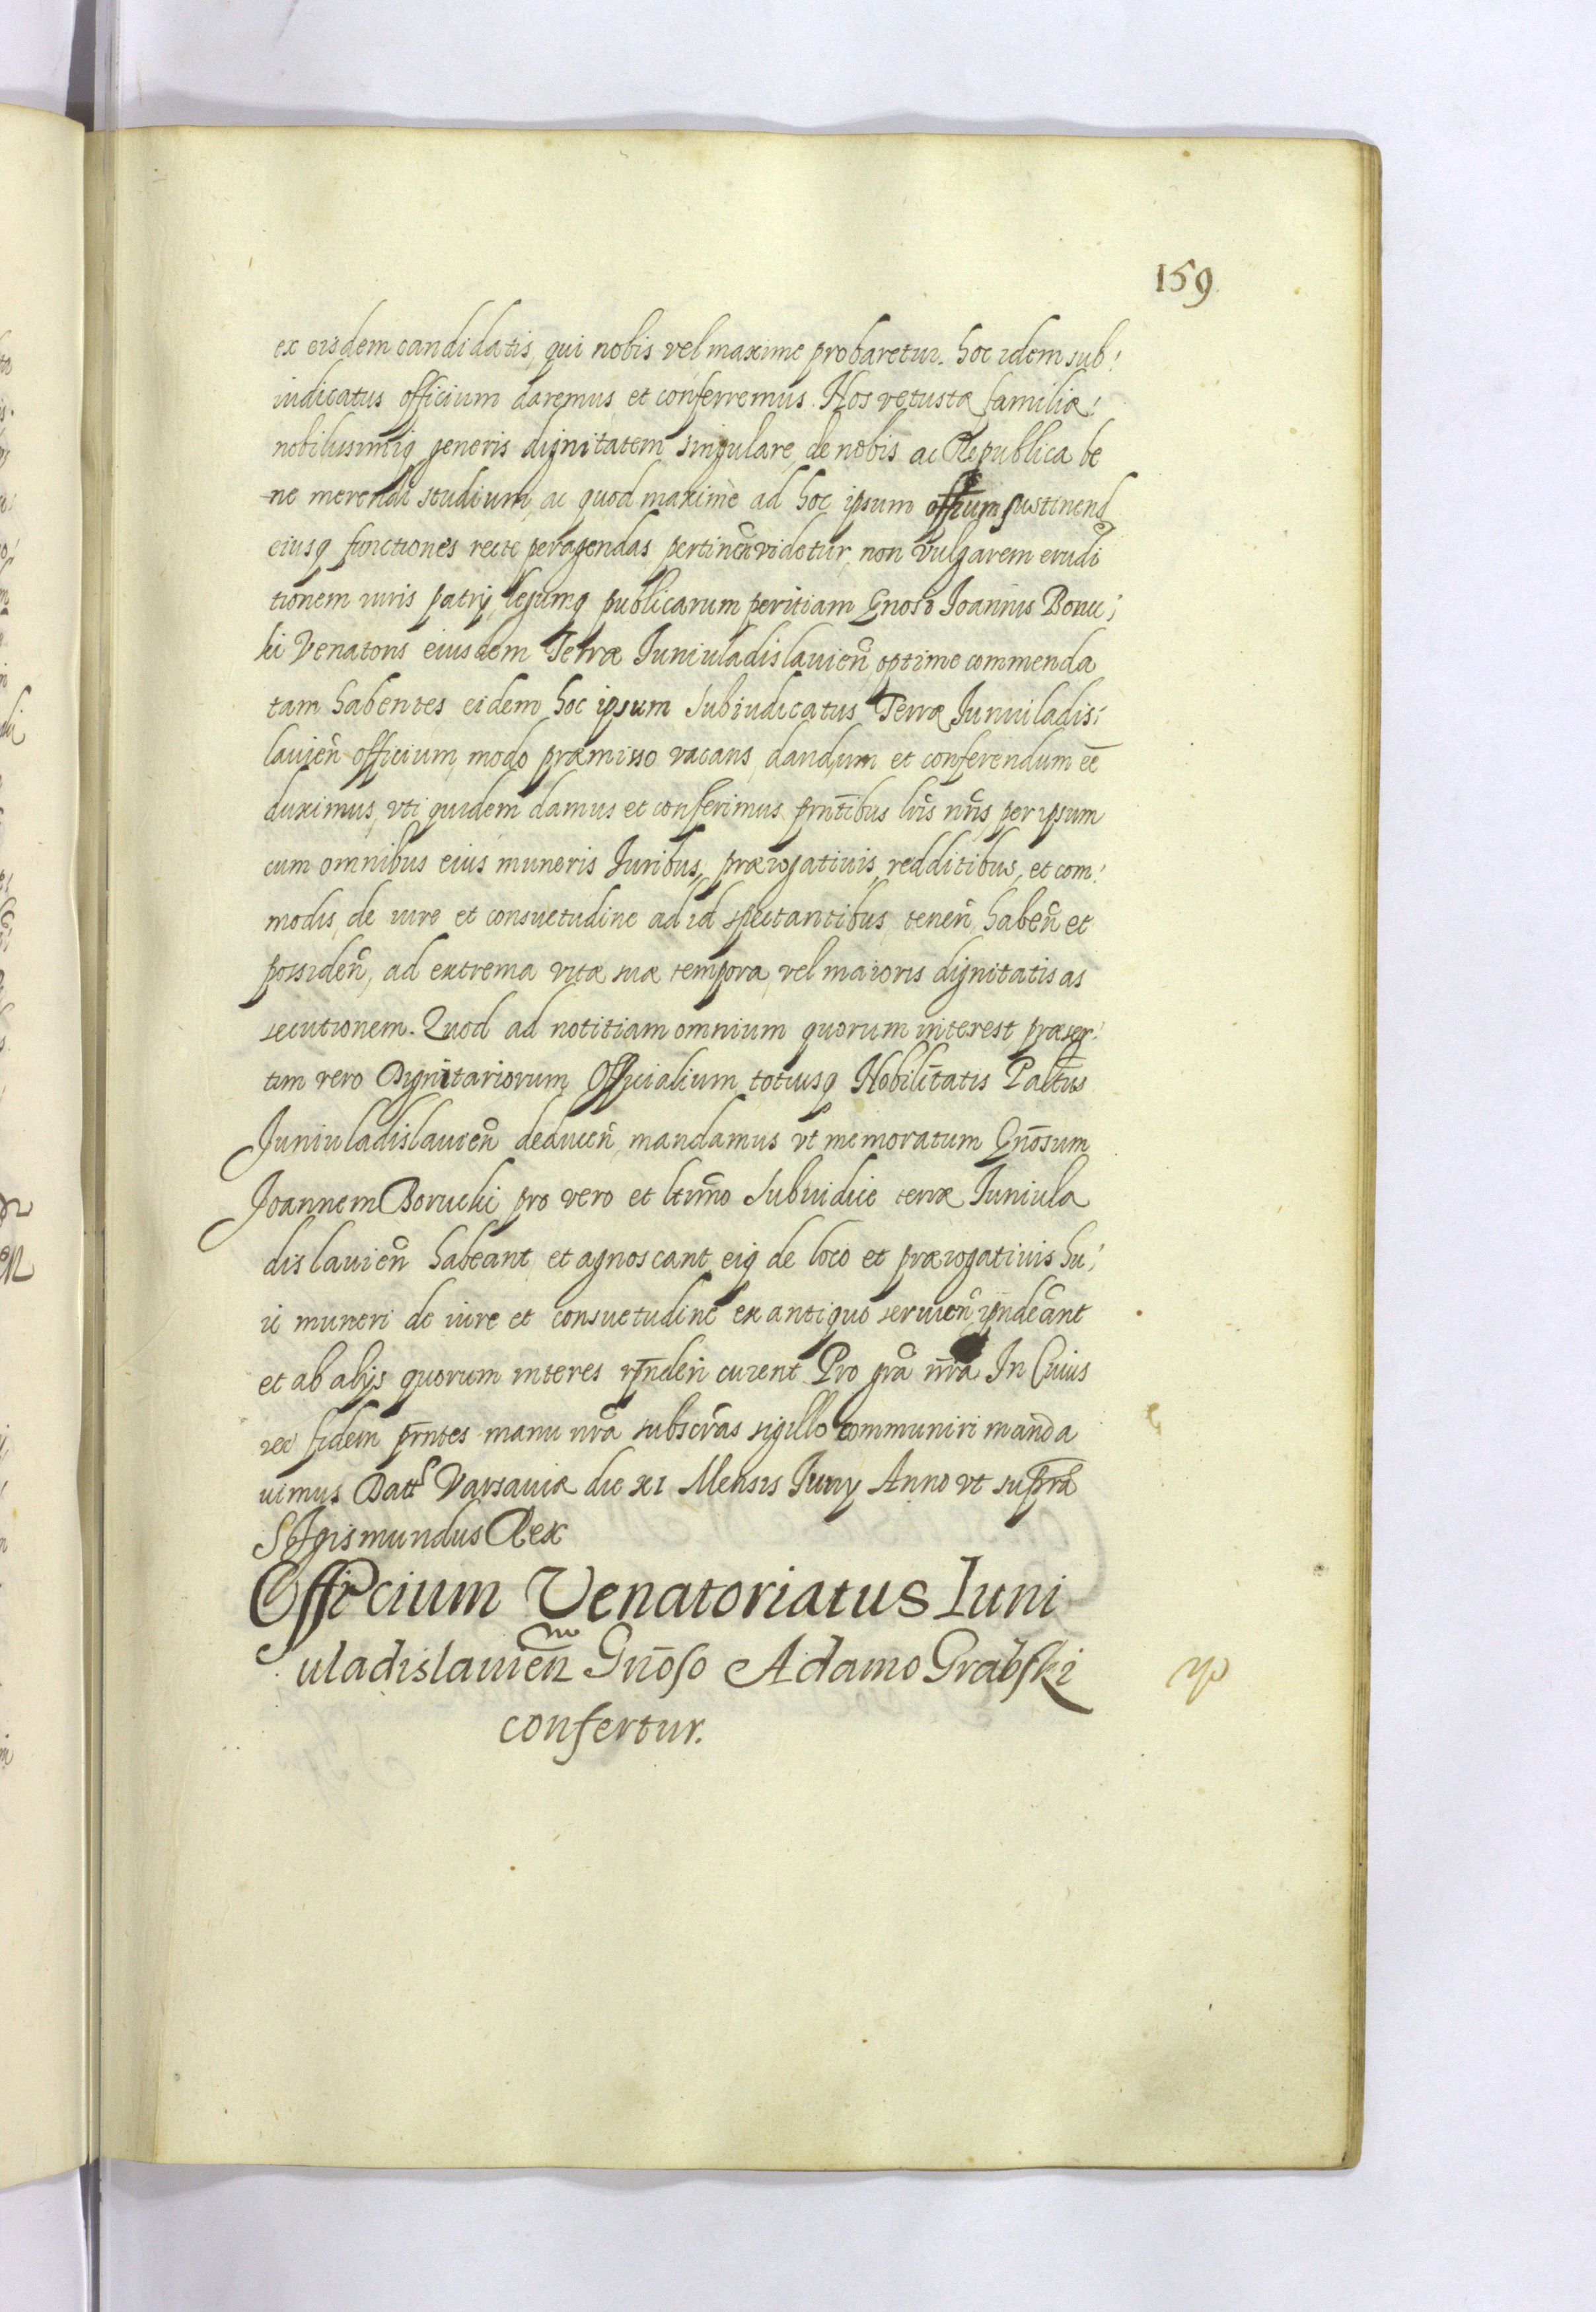 159
ex eisdem candidatis, qui nobis vel maxime probaretur. hoc idem sub:
iudicatus officium daremus et conferremus. Nos vetustæ familiæ:
nobilissimiq generis dignitatem singulare, de nobis ac Republica be
ne merendi studium, ac quod maxime ad hoc ipsum offium sustinend
eiusq functiones recte peragendas pertinere videtur, non vulgarem erudi
tionem iuris patrij, legumq publicarum peritiam Gnosi Joannis Boruc:
ki Venatoris eiusdem Terræ Juniuladislauien̄ optime commenda
tam habentes eidem hoc ipsum Subiudicatus Terræ Juniuladis:
lauien̄ officium, modo præmisso vacans, dandum et conferendum eē
duximus, vti quidem damus et conferimus prn̄tibus lr̄is nr̄is per ipsum
cum omnibus eius muneris Juribus, prærogatiuis, redditibus, et com:
modis, de iure et consuetudine ad id spectantibus, tenen̄, haben̄ et
possiden̄, ad extrema vitæ suæ tempora, vel maioris dignitatis as
secutionem. Quod ad notitiam omnium quorum interest præser:
tim vero Dignitariorum Officialium totiusq Nobilitatis Paltus
Juniuladislauien̄ deducen̄, mandamus vt memoratum Gnōsum
Joannem Borucki pro vero et ltīmo Subiudice terræ Juniula
dislauien̄ habeant et agnoscant eiq de loco et prærogatiuis hu:
ic muneri de iure et consuetudine ex antiquo seruien̄ rn̄deant
et ab alijs quorum interes rn̄deri curent Pro gra nr̄a. In Cuius
rei fidem prn̄tes manu nr̄a subscras sigillo communiri manda
uimus Datt Varsauiæ die XI Mensis Juny Anno vt supra
Sigismundus Rex
Officium Venatoriatus Iuni
uladislauien̄ Gnōso Adamo Grabski
confertur.